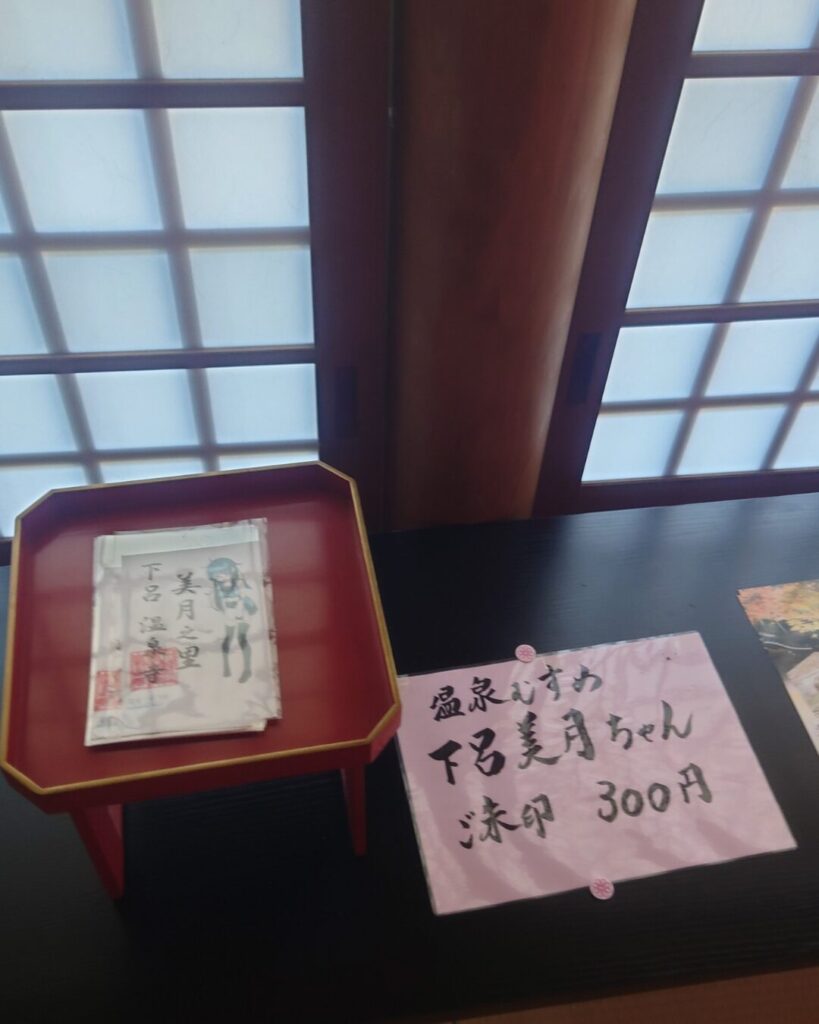 美月之里
下呂 温泉寺
温泉むすめ
下呂美月ちゃん
ご朱印 300円